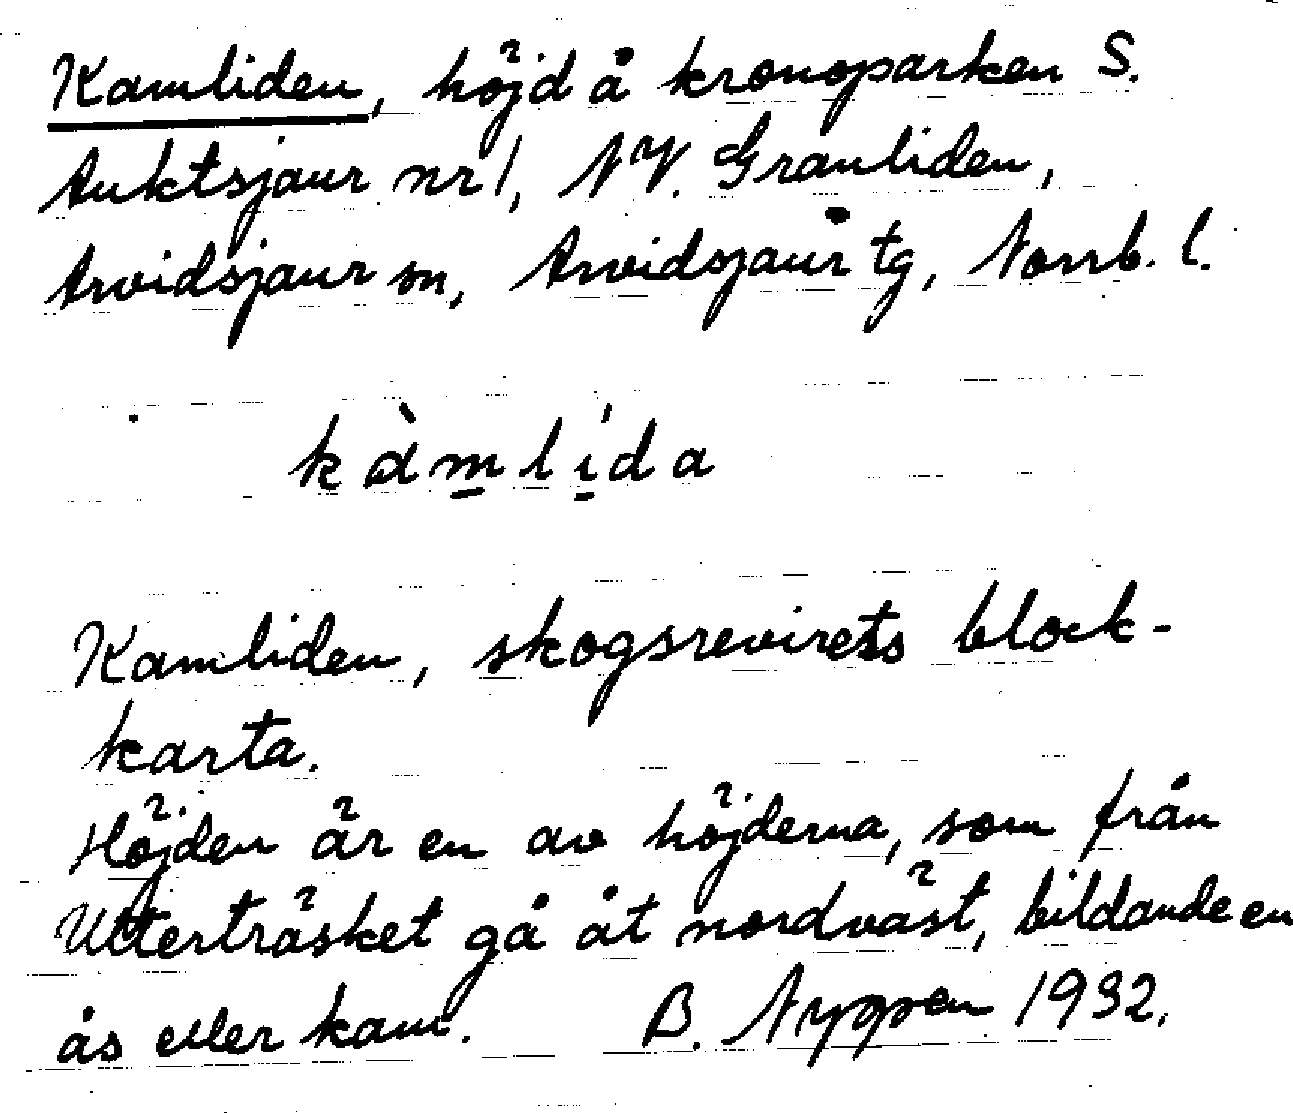 Kamliden, höjd å kronoparken S.
Auktsjaur nr 1, NV. Granliden,
Arvidsjaur sn, Arvidsjaurs tg, Norrb. l.
kàmlída
Kamliden, skogsrevirets block-
karta.
Höjden är en av höjderna, som från
Utterträsket gå åt nordväst, bildande en
ås eller kam. B. Nygren 1932.